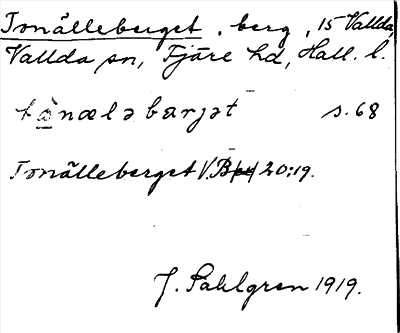 Tonälleberget, berg, 15 Vallda,
Vallda sn, Fjäre hd, Hall. l.
tònæləbærjət s. 68
Tonälleberget V. B 20:19.
J. Sahlgren 1919.